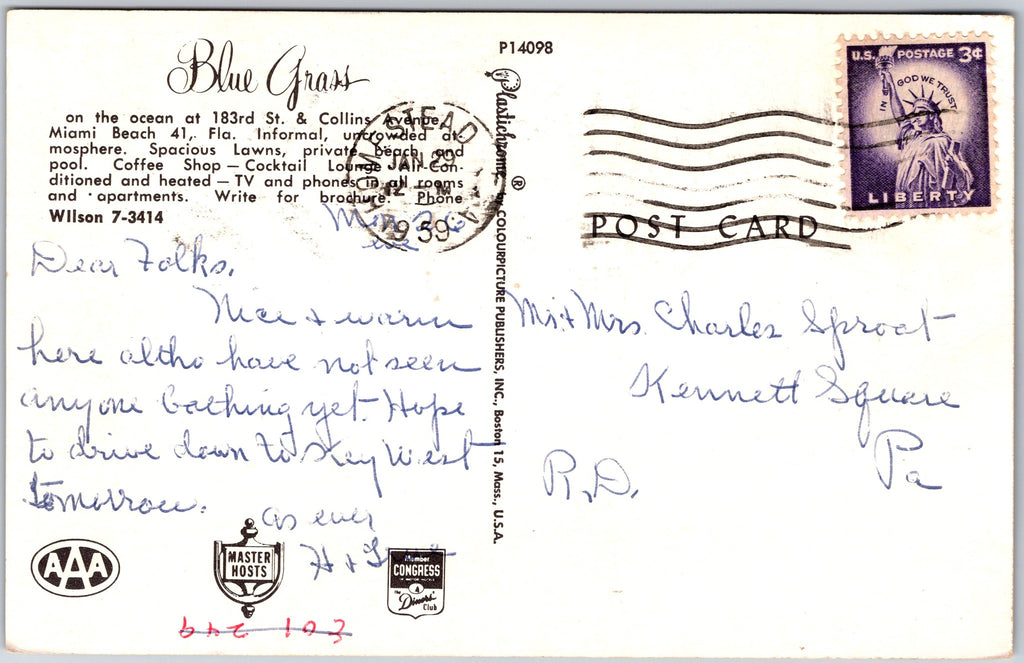 Blue Grass
on the ocean at 183rd St. & Collins Avenue,
Miami Beach 41, Fla. Informal, uncrowded at-
mosphere. Spacious Lawns, private beach and
pool. Coffee Shop — Cocktail Lounge Air-Con-
ditioned and heated — TV and phones in all rooms
and apartments. Write for brochure. Phone
WIlson 7-3414
eve
Dear Folks,
Nice & warm
here altho have not seen
anyone bathing yet. Hope
to drive down to Key West
tomorrow.
as ever
H &
AAA
MASTER
HOSTS
Member
CONGRESS
OF MOTOR HOTELS
The
Diners'
Club
P14098
Plastichrome ® by COLOURPICTURE PUBLISHERS, INC., Boston 15, Mass., U.S.A.
HOMESTEAD
JAN 29
12 M
1959
FLA
U.S. POSTAGE 3¢
IN GOD WE TRUST
LIBERTY
POST CARD
Mr. & Mrs. Charles Sproat
Kennett Square
Pa
R.D.